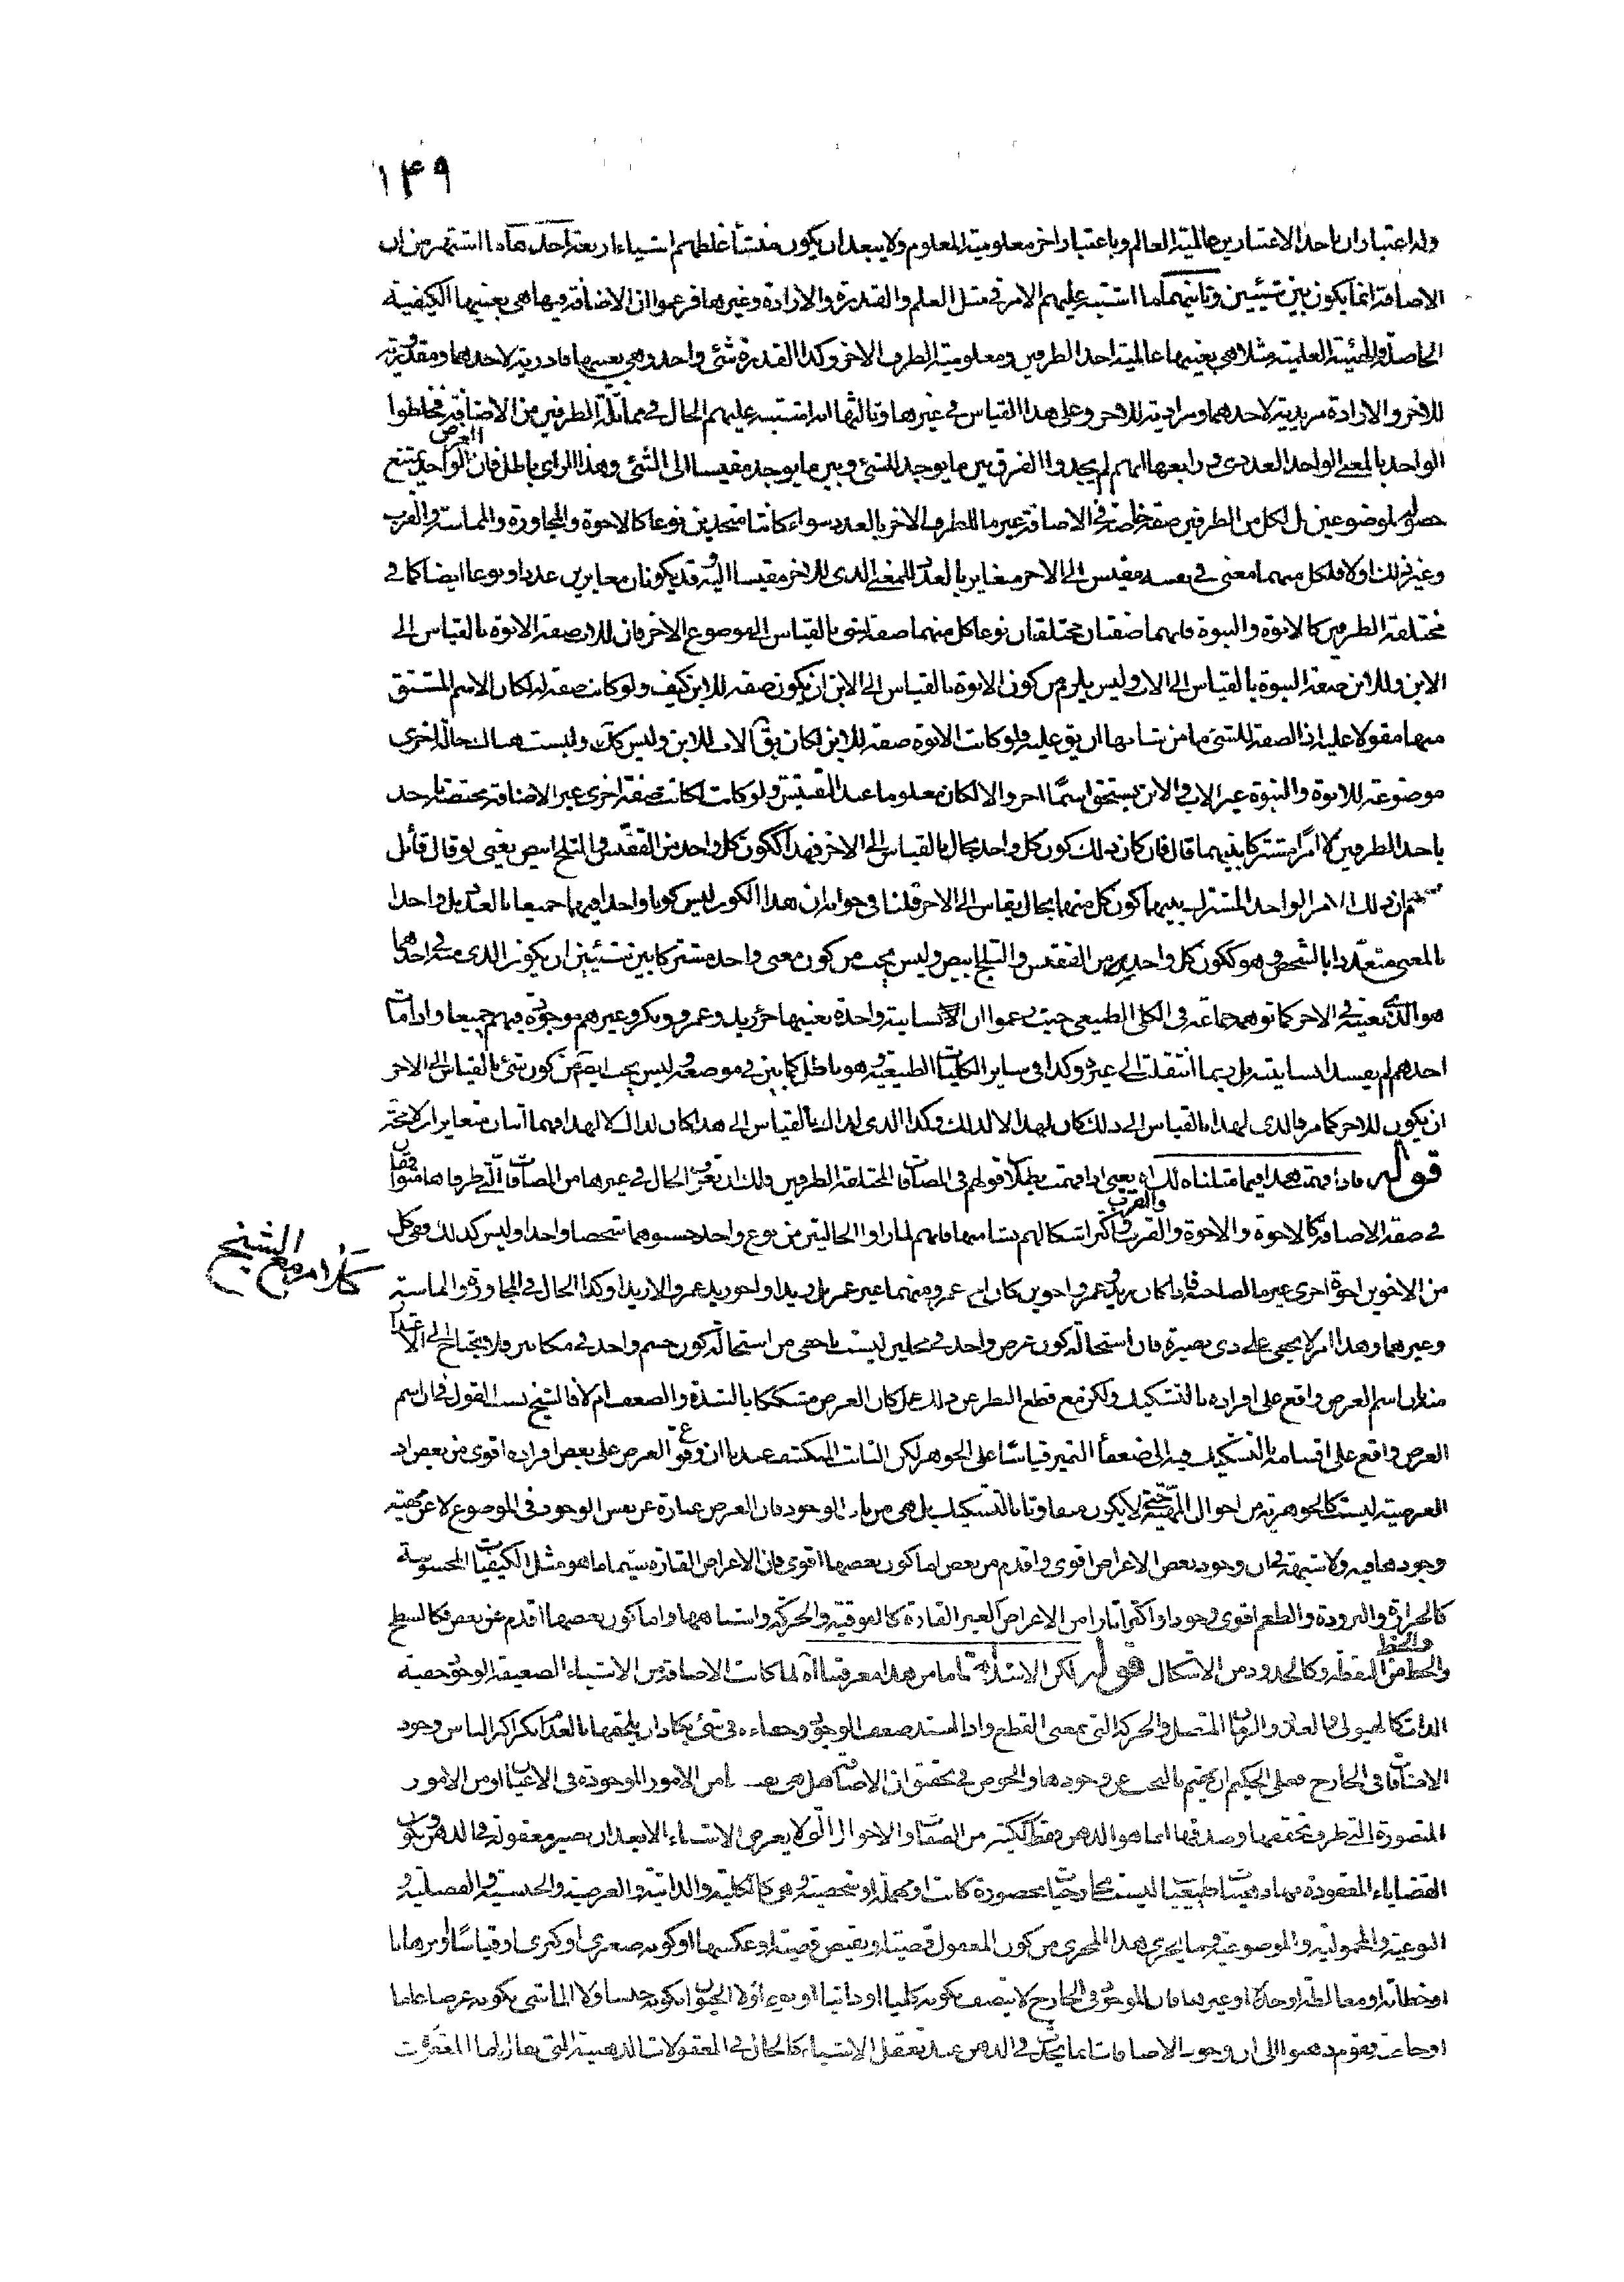 ١٤٩
وله اعتباران باحد الاعتبارين عالمية العالم وباعتبار اخر معلومية المعلوم ولا يبعد ان يكون منشأ غلطهم اشياء اربعة احدها ما اشتهر من ان
الاضافة انما يكون بين شيئين وثانيهما ما اشتبه عليهم الامر في مثل العلم والقدرة والارادة وغيرها فزعموا ان الاضافة فيها هي بعينها الكيفية
الحاصلة فالهيئة العلمية مثلا هي بعينها عالمية احد الطرفين ومعلومية الطرف الاخر وكذا القدرة شئ واحد وهي بعينها قادرية لاحدهما ومقدورية
للاخر والارادة مريدية لاحدهما ومرادية للاخر وعلى هذا القياس في غيرها وثالثها انه اشتبه عليهم الحال في مماثلة الطرفين من الاضافة فخلطوا
الواحد بالمعنى الواحد العددى ورابعها انهم لم يجدوا الفرق بين ما يوجد للشئ وبين ما يوجد مقيسا الى الشئ وهذا الراى باطل فان العرض الواحد يمتنع
حصوله لموضوعين بل لكل من الطرفين صفة خاصة في الاضافة غير ما للطرف الاخر بالعدد سواء كانتا متحدين نوعا كالاخوة والمجاورة والمماسة والقرب
وغير ذلك اولا فلكل منهما معنى في نفسه مقيس الى الاخر مغاير بالعدد للمعنى الذى للاخر مقيسا اليه وقد يكونان مغايرين عددا ونوعا ايضا كما في
مختلفة الطرفين كالابوة والبنوة فانهما صفتان مختلفتان نوعا كل منهما صفة لشئ بالقياس الى موضوع الاخر فان للاب صفة الابوة بالقياس الى
الابن وللابن صفة البنوة بالقياس الى الاب وليس يلزم من كون الابوة بالقياس الى الابن ان يكون صفة للابن كيف ولو كانت صفة له لكان الاسم المشتق
منها مقولا عليه اذ الصفة للشئ ما من شانها ان يق عليه ولو كانت الابوة صفة للابن لكان يق الاب للابن وليس كك وليست هناك حالة اخرى
موضوعة للابوة والبنوة غير الاب والابن يستحق اسما اخر والا لكان معلوما عند التفتيش ولو كانت لكانت صفة اخرى غير الاضافة مختصة باحد
باحد الطرفين لا امرا مشتركا بينهما قال فان كان ذلك كون كل واحد بحال بالقياس الى الاخر فهذا ككون كل واحد من الققنس والثلج ابيض يعنى لو قال قائل
ان ذلك الامر الواحد المشترك بينهما كون كل منهما بحال يقاس الى الاخر قلنا في جوابه ان هذا الكون ليس كونا واحدا فيهما جميعا بالعدد بل واحدا
بالمعنى متعددا بالشخص وهو ككون كل واحد من الققنس والثلج ابيض وليس يجب من كون معنى واحد مشتركا بين شيئين ان يكون الذى منه في احدهما
هو الذى بعينه في الاخر كما توهمه جماعة في الكلى الطبيعى حيث زعموا ان الانسانية واحدة بعينها في زيد وعمرو وبكر وغيرهم موجودة فيهم جميعا واذا مات
احدهم لم يفسد انسانيته بل ربما انتقلت الى غيره وكذا في ساير الكليات الطبيعية وهو باطل كما بين في موضعه وليس يجب ايضا من كون شئ بالقياس الى الاخر
ان يكون للاخر كما مر فالذى لهذا بالقياس الى ذلك كان لهذا لا لذلك وكذا الذى لذاك بالقياس الى هذا كان لذاك لا لهذا فهما اثنان متغايران لا محة
قوله فاذا فهمت هذا فيما مثلناه لك اه يعنى اذا فهمت بطلان قولهم في المضافات المختلفة الطرفين فلك ان تعرف الحال في غيرها من المضافات التى طرفاها متوافقان
في صفة الاضافة كالاخوة والاخوة والقرب والقرب واكثر اشكالهم بشانها فانهم لما راوا الحالتين من نوع واحد حسبوهما شخصا واحدا وليس كذلك وفى كل
كلام مع الشيخ
من الاخوين اخوة اخرى غير ما لصاحبه فاذا كان زيد وعمرو اخوين كان لعمرو منهما غير عمرو بل زيدا واخو زيد عمرو الا زيدا وكذا الحال في المجاورة والمماسة
وغيرهما وهذا امر لا يخفى على ذى بصيرة فان استحالة كون عرض واحد في محلين ليست باخفى من استحالة كون جسم واحد في مكانين فلا يحتاج الى الاعتذار
منه بان اسم العرض واقع على افراده بالتشكيك ولكن مع قطع النظر عن ذلك هل كان العرض مشككا بالشدة والضعف ام لا فالشيخ نسب القول في ان اسم
العرض واقع على اقسامه بالتشكيك فيه الى ضعفاء التميز قياسا على الجوهر لكن الثابت المكشف عندنا ان وقوع العرض على بعض افراده اقوى من بعض اذ
العرضية ليست كالجوهرية من احوال المهية حتى لا يكون متفاوتا بالتشكيك بل هى من باب الوجود فان العرض عبارة عن نفس الوجود في الموضوع لا عن مهية
وجودها فيه ولا شبهة في ان وجود بعض الاعراض اقوى واقدم من بعض اما كون بعضها اقوى فان الاعراض القارة سيما ما هو مثل الكيفيات المحسوسة
كالحرارة والبرودة والطعم اقوى وجودا واكثر اثارا من الاعراض الغير القارة كالفوقية والحركة واشباهها واما كون بعضها اقدم من بعض فكالسطح
والخط والخط من النقطة وكالحدود من الاشكال قوله لكن الاشد اهتماما من هذا معرفتنا اه لما كانت الاضافة من الاشياء الضعيفة الوجود خفية
الذات كالهيولى والعدد والزمان المتصل والحركة التى بمعنى القطع واذا اشتد ضعف الوجود وخفاءه في شئ يكاد ان يلحقها بالعدم انكر اكثر الناس وجود
الاضافات في الخارج فعلى الحكيم ان يهتم بالبحث عن وجودها والخوض في تحقيق ان الاضافة هل هى بعد من الامور الموجودة في الاعيان او من الامور
المتصورة التى ظرف تحققها وصدقها انما هو الذهن فقط ككثير من الصفات والاحوال التى لا يعرض الاشياء الا بعد ان يصير معقولة في الذهن ويكون
القضايا المعقودة بها ذهنيات طبيعيات ليست خارجيات محصورة كانت او مهملة او شخصية وهى كالكلية والذاتية والعرضية والجنسية والفصلية و
النوعية والمحمولية والموضوعية وما يجرى هذا المجرى من كون المعقول قضية او نقيض قضية او عكسها او كونه صغرى او كبرى او قياسا او برهانا
او خطابة او مغالطة او جدلا او غيرها فان الموجود في الخارج لا يتصف بكونه كليا او ذاتيا او نوعا ولا الحيوان بكونه جنسا ولا الماشى بكونه عرضا عاما
او خاصة فقوم ذهبوا الى ان وجود الاضافات انما يتحقق في الذهن عند تعقل الاشياء كالحال في المعقولات الذهنية التى يقال لها